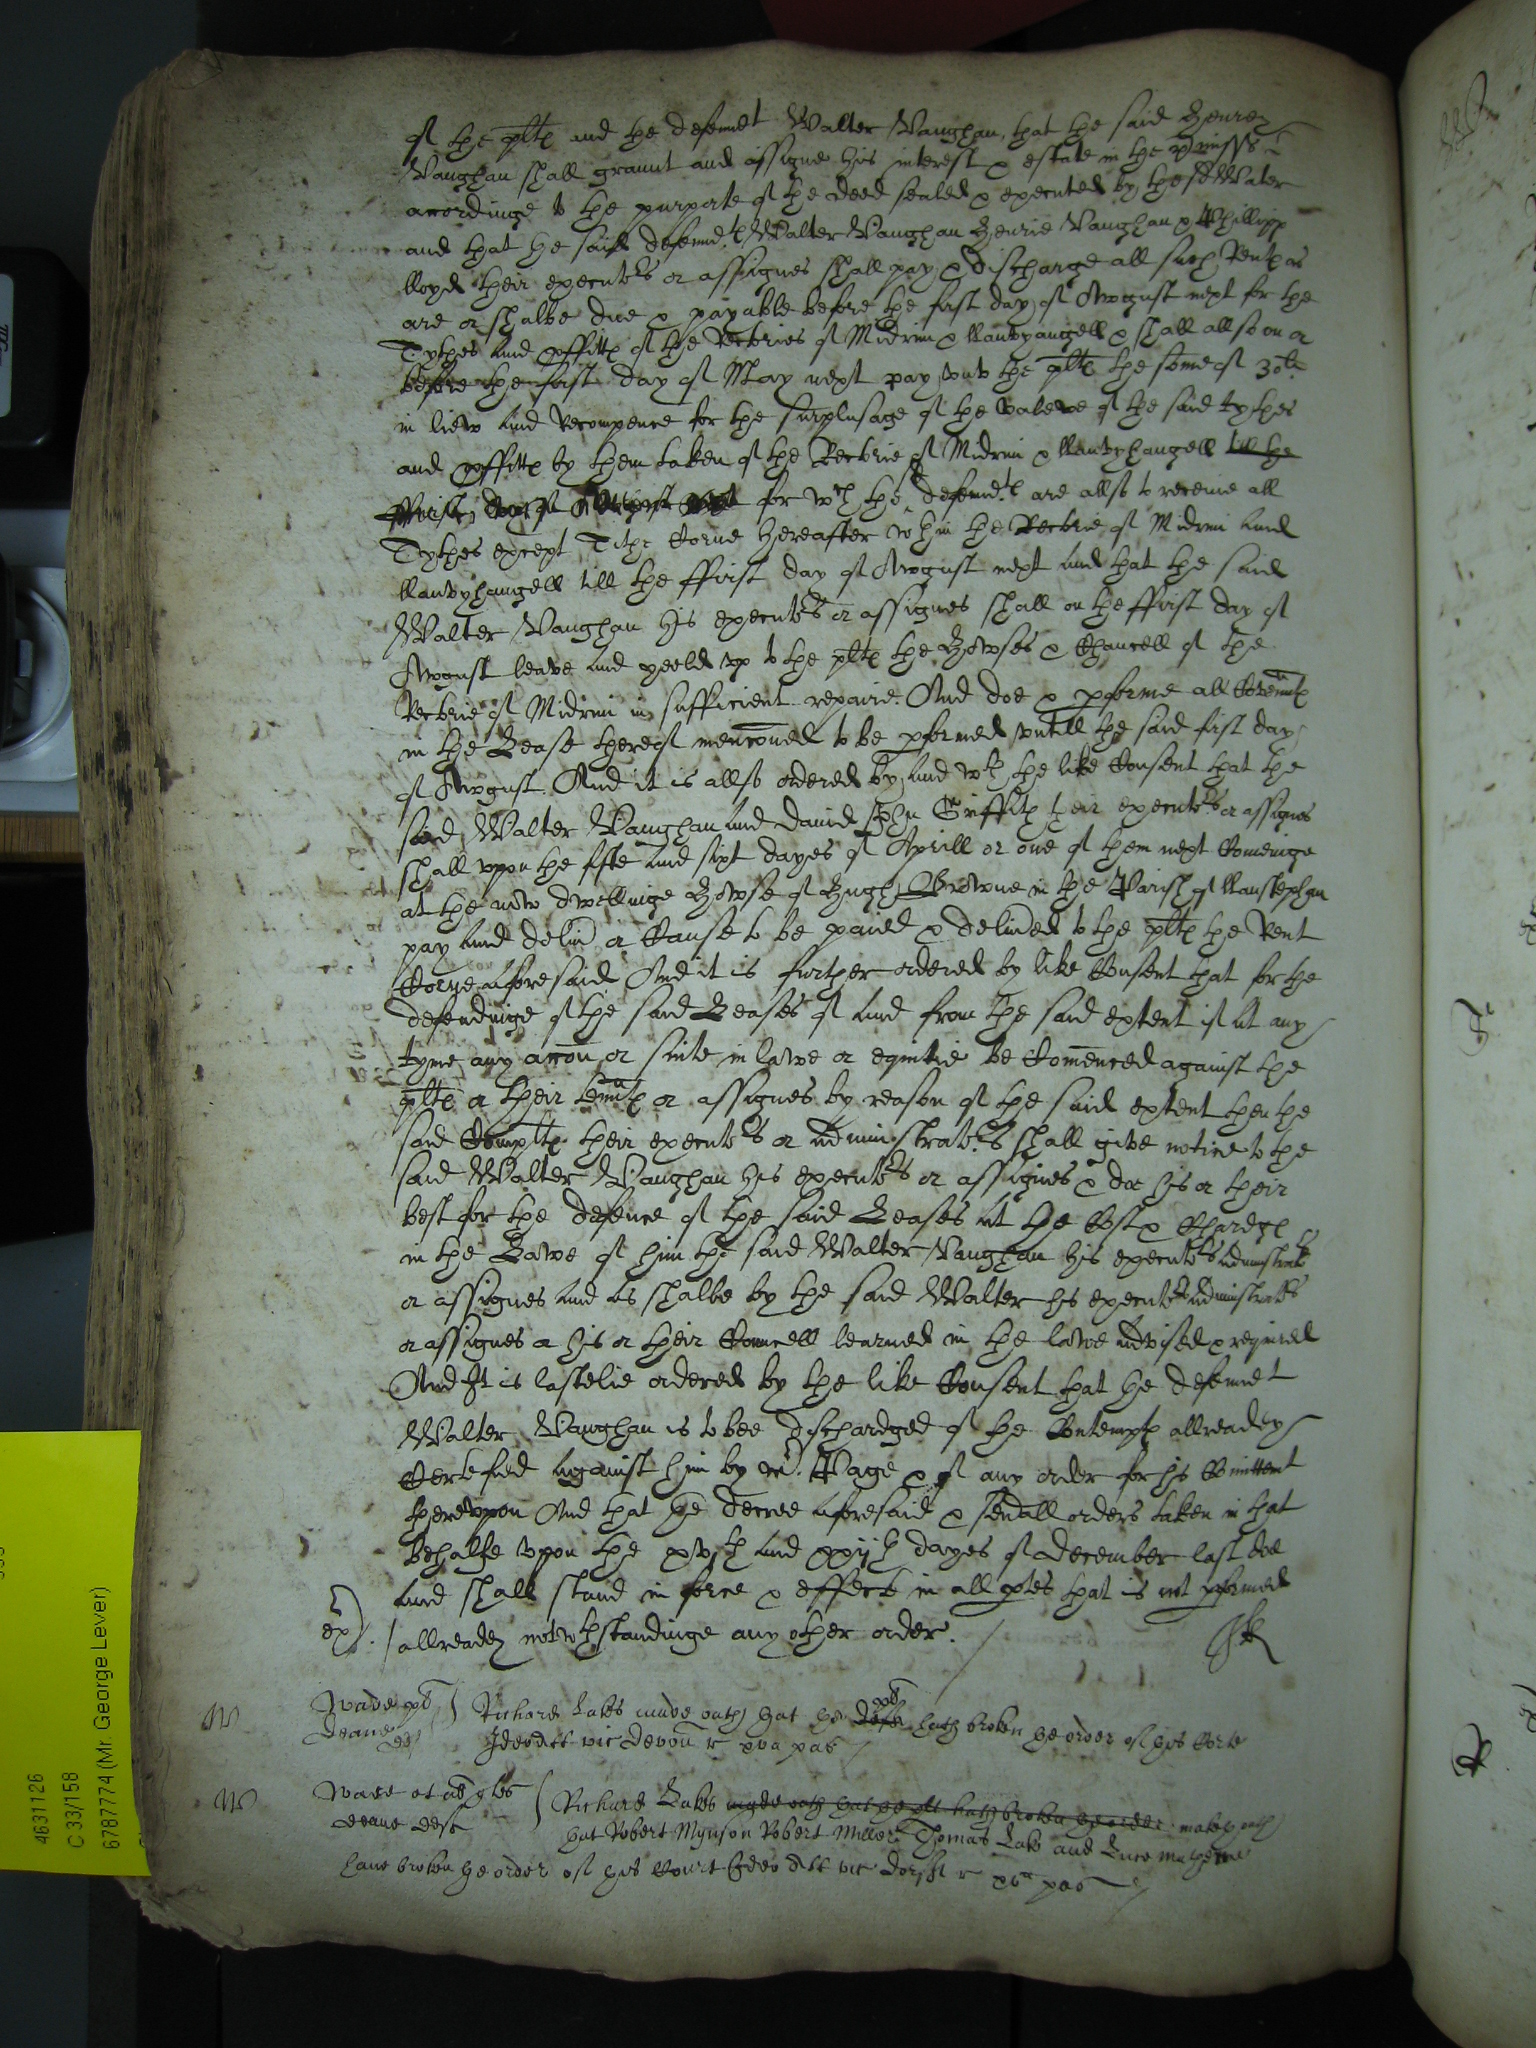 of the pltes and the defendt Walter Vaughan, that the said Henrey
Vaughan shall graunt and assigne his interest & estate in the
accordinge to the purporte of the deed sealed & executed by the sd Walter
and that the said defendtes Walter Vaughan Henrie Vaughan & Phillipp
lloyd their executors or assignes shall pay & discharge all such Rentes as
are or shalbe due & payable before the first day of August next for the
Tythes and pffittes of the Rectories of Midrim & llanvyangell & shall allso on or
before the first day of May next pay unto the pltes the some of 30li
in liew and recompence for the surplusage of the valewe of the said tythes
and pffittes by them taken of the Rectorie of Midrim & llanvyhangell till the
ffirst day of August next for wch the defendtes are allso to receive all
Tythes except Tithe Corne hereafter wthin the Rectorie of Midrim and
llanvyhangell till the ffirst day of August next And that the said
Walter Vaughan his executors or assignes shall on the ffirst day of
August leave and yeeld up to the pltes the Howses & Chancell of the
Rectorie of Midrim in sufficient repaire. And doe & pforme all Covenntes
in the Lease thereof menconed to be pformed untill the said first day
of August. And it is allso ordered by and wth the like Consent that the
said Walter Vaughan and David John Griffith their executors or assignes
shall uppon the fifte and sixt dayes of Aprill or one of them next Comeinge
at the now dwellinge Howse of Hugh Browne in the Parish of llanstephan
pay and delivr or Cause to be paied & delived to the pltes the Rent
Corne aforesaid And it is further ordered by like Consent that for the
defendinge of the said Leases of and from the said extent if at any
tyme any accon or suite in lawe or equitie be Comenced against the
pltes or their tenntes or assignes by reason of the said extent then the
said Compltes their executors or administrators shall give notice to the
said Walter Vaughan his executors or assignes & doe his or their
best for the defence of the said Leases at the Cost & Chardges
in the Lawe of him the said Walter Vaughan his executors administrators
or assignes and as shalbe by the said Walter his executors administrators
or assignes or his or their Councell learned in the lawe advised & required
And It is lastelie ordered by the like Consent that the defendt
Walter Vaughan is to bee dischardged of the Contemptes allreadey
Certefied against him by mr. Page & of any order for his Comittemt
thereuppon And that the decree aforesaid & severall orders taken in that
behalfe uppon the xvth and xxijth dayes of december last doe
and shall stand in force & effect in all ptes that is not pformed
ex). / allreadey notwthstandinge any other order. /
W Wade pls Deane def Richard Lakes made oath that the defts pls hath broken the order of this Corte
Ideo att vic Devon r xva pas
W Wade et als ples Deane deft Richard Lakes made oath that the plt hath broken the order maketh oath
that Robert Mynson Robert Miller Thomas Lake and
have broken the order of this Court Ideo att vic r xva pas
4631126
C 33/158
6787774 (Mr. George Lever)